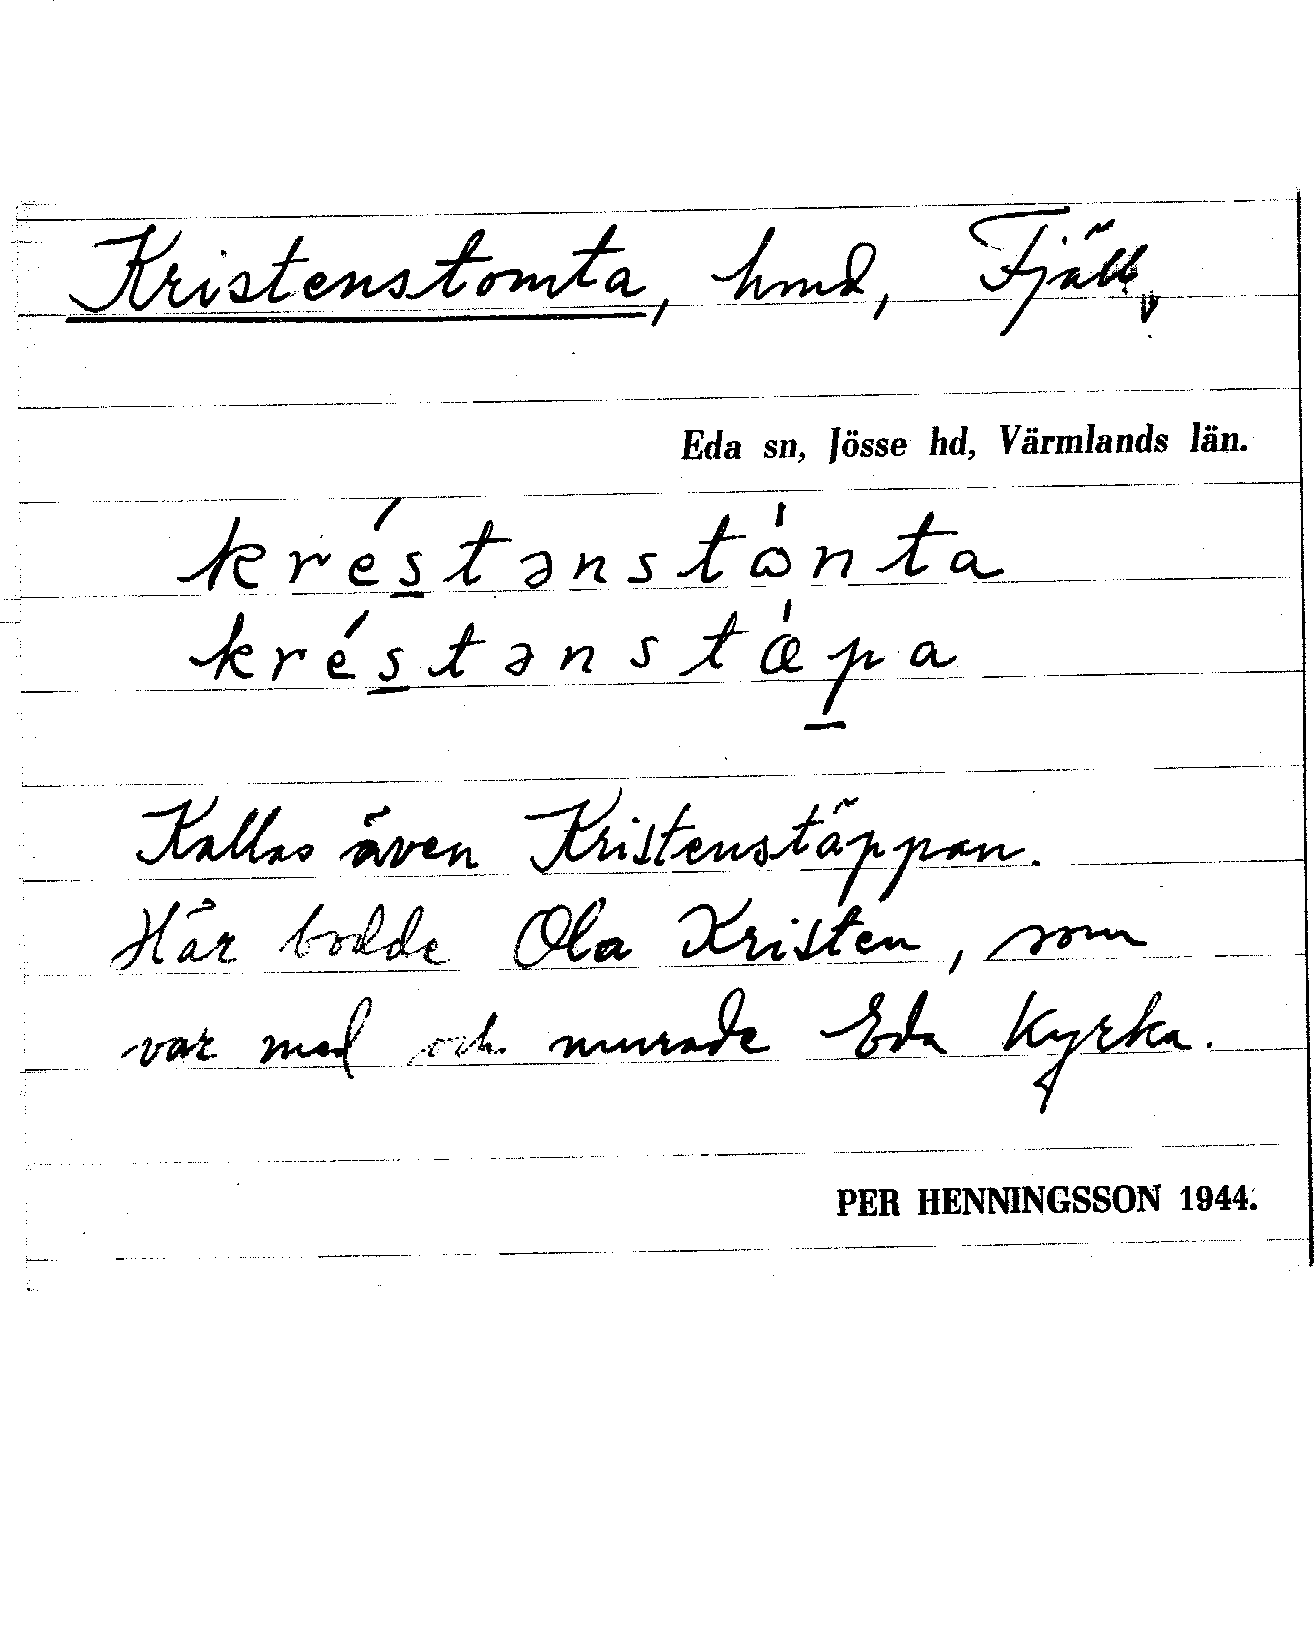 Kristenstomta, hmd, Fjäll,
Eda sn, Jösse hd, Värmlands län.
kréstənstònta
kréstənstæ̀pa
Kallas även Kristenstäppan.
Här bodde Ola Kristen, som
var med och murade Eda kyrka.
PER HENNINGSSON 1944.